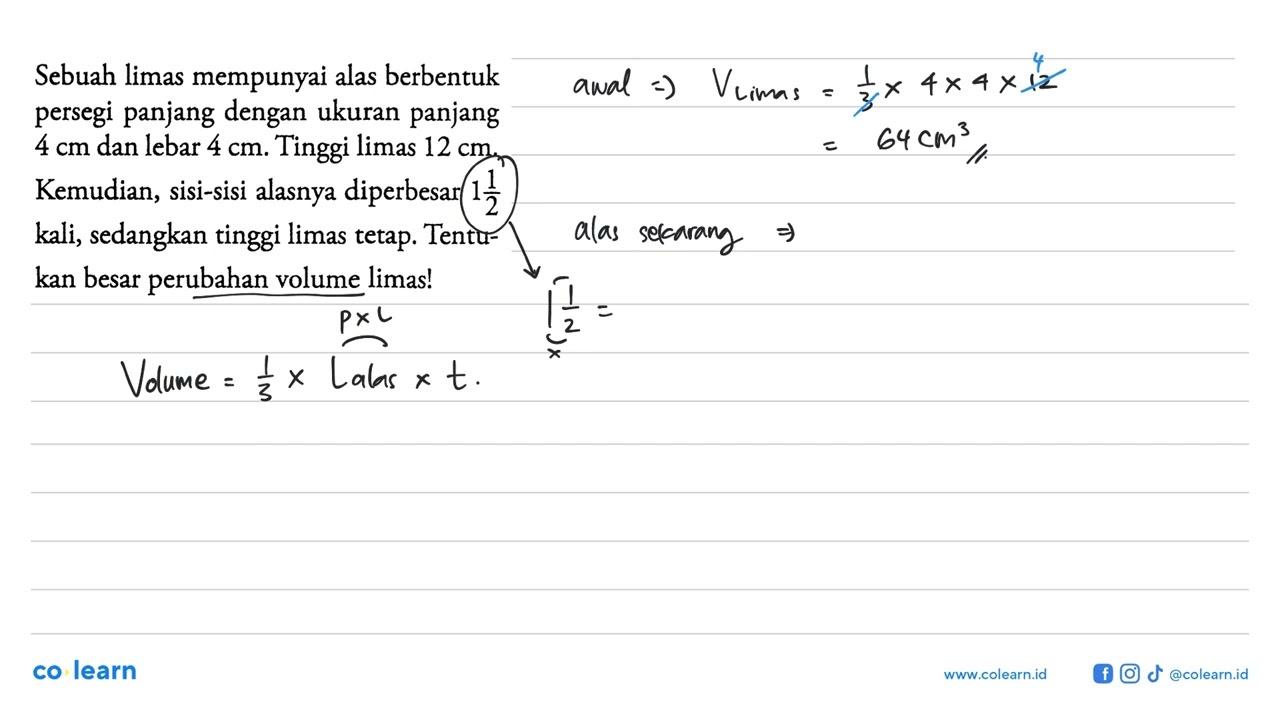 Sebuah limas mempunyai alas berbentuk
persegi panjang dengan ukuran panjang
4 cm dan lebar 4 cm. Tinggi limas 12 cm.
Kemudian, sisi-sisi alasnya diperbesar 1 1/2
kali, sedangkan tinggi limas tetap. Tentu-
kan besar perubahan volume limas!
P x L
Volume = 1/3 x Lalas x t.
awal => V Limas = 1/3 x 4 x 4 x 12
4
= 64 cm³
alas sekarang =>
1 1/2 =
x
co learn
www.colearn.id
@colearn.id